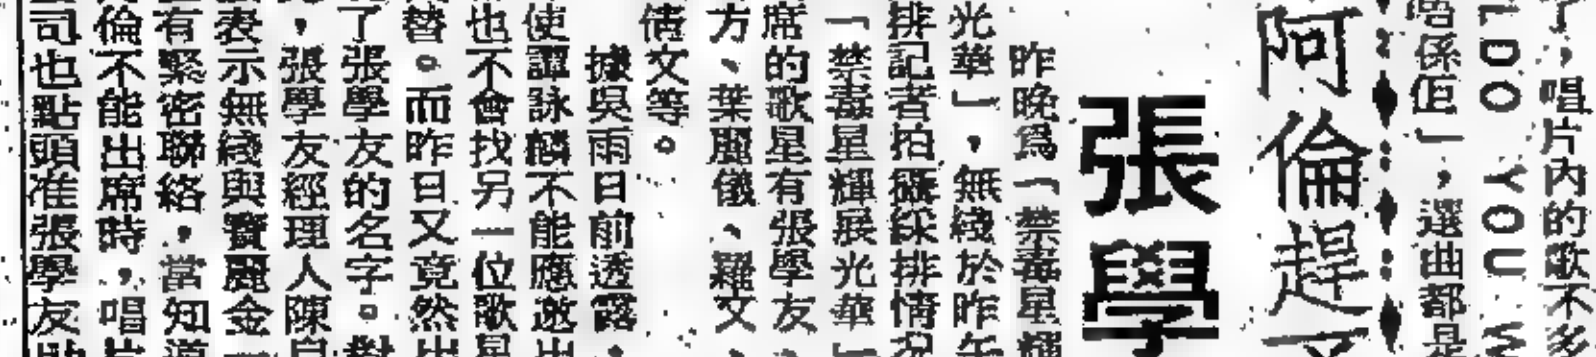 了，唱片內的歌不多
LDO YOU W
唔係佢」，選曲都是
阿倫趕
張學
昨晚爲「禁毒星輝
光華」，無綫於昨午
排記者拍攝綵排情況
「禁毒星輝展光華」
席的歌星有張學友、
方、葉麗儀、羅文、
倩文等。
據吳雨日前透露，
使譚詠麟不能應邀出
也不會找另一位歌星
替。而昨日又竟然出
了張學友的名字。對
，張學友經理人陳自
表示無綫與寶麗金一
有緊密聯絡，當知道
倫不能出席時，唱片
司也點頭准張學友